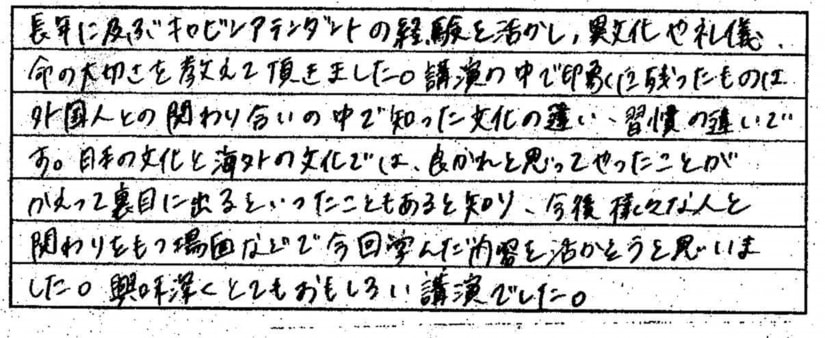 長年に及ぶキャビンアテンダントの経験を活かし、異文化や礼儀、
命の大切さを教えて頂きました。講演の中で印象に残ったものは
外国人との関わり合いの中で知った文化の違い、習慣の違いで
す。日本の文化と海外の文化では、良かれと思ってやったことが
かえって裏目に出るといったこともあると知り、今後様々な人と
関わりをもつ場面などで今回学んだ内容を活かそうと思いま
した。興味深くとてもおもしろい講演でした。